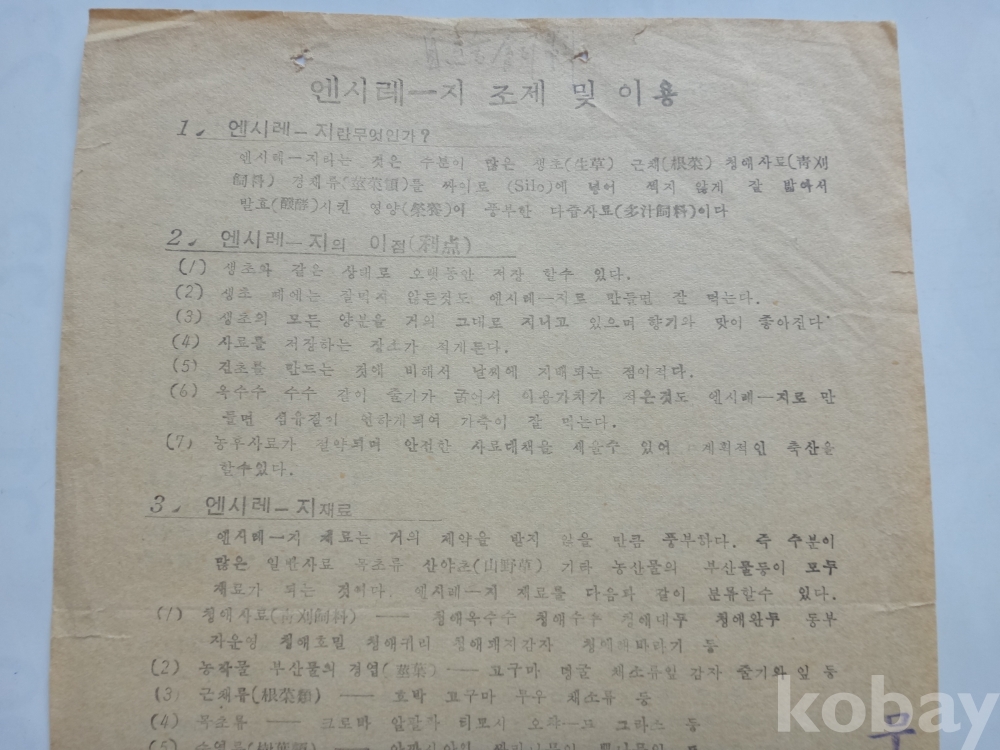 엔시레ㅡ지 조제 및 이용
1. 엔시레ㅡ지란무엇인가?
엔시레ㅡ지라는 것은 수분이 많은 생초(生草) 근채(根菜) 청애사료(靑刈
飼料) 경채류(莖菜類)를 싸이로(Silo)에 넣어 썩지 않게 잘 밟아서
발효(醱酵)시킨 영양(榮養)이 풍부한 다즙사료(多汁飼料)이다
2. 엔시레ㅡ지의 이점(利点)
(1) 생초와 같은 상태로 오랫동안 저장 할수 있다.
(2) 생초 때에는 잘먹지 않든것도 엔시레ㅡ지로 만들면 잘 먹는다.
(3) 생초의 모든 양분을 거의 그대로 지니고 있으며 향기와 맛이 좋아진다
(4) 사료를 저장하는 장소가 적게든다.
(5) 건초를 만드는 것에 비해서 날씨에 지배되는 점이적다.
(6) 옥수수 수수 같이 줄기가 굵어서 이용가치가 적은것도 엔시레ㅡ지로 만
들면 섬유질이 연하게되여 가축이 잘 먹는다.
(7) 농후사료가 절약되며 안전한 사료대책을 세울수 있어 계획적인 축산을
할수있다.
3. 엔시레ㅡ지재료
엔시레ㅡ지 재료는 거의 제약을 받지 않을 만큼 풍부하다. 즉 수분이
많은 일반사료 목초류 산야초(山野草) 기타 농산물의 부산물등이 모두
재료가 되는 것이다. 엔시레ㅡ지 재료를 다음과 같이 분류할수 있다.
(1) 청애사료(靑刈飼料) ── 청애옥수수 청애수수 청애대두 청애완두 동부
자운영 청애호밀 청애귀리 청애돼지감자 청애해바라기 등
(2) 농작물 부산물의 경엽(莖葉) ── 고구마 덩굴 채소류잎 감자 줄기와 잎 등
(3) 근채류(根菜類) ── 호박 고구마 무우 채소류 등
(4) 목초류 ── 크로바 알팔파 티모시 오차ㅡ드 그라스 등
(5)
무
kobay